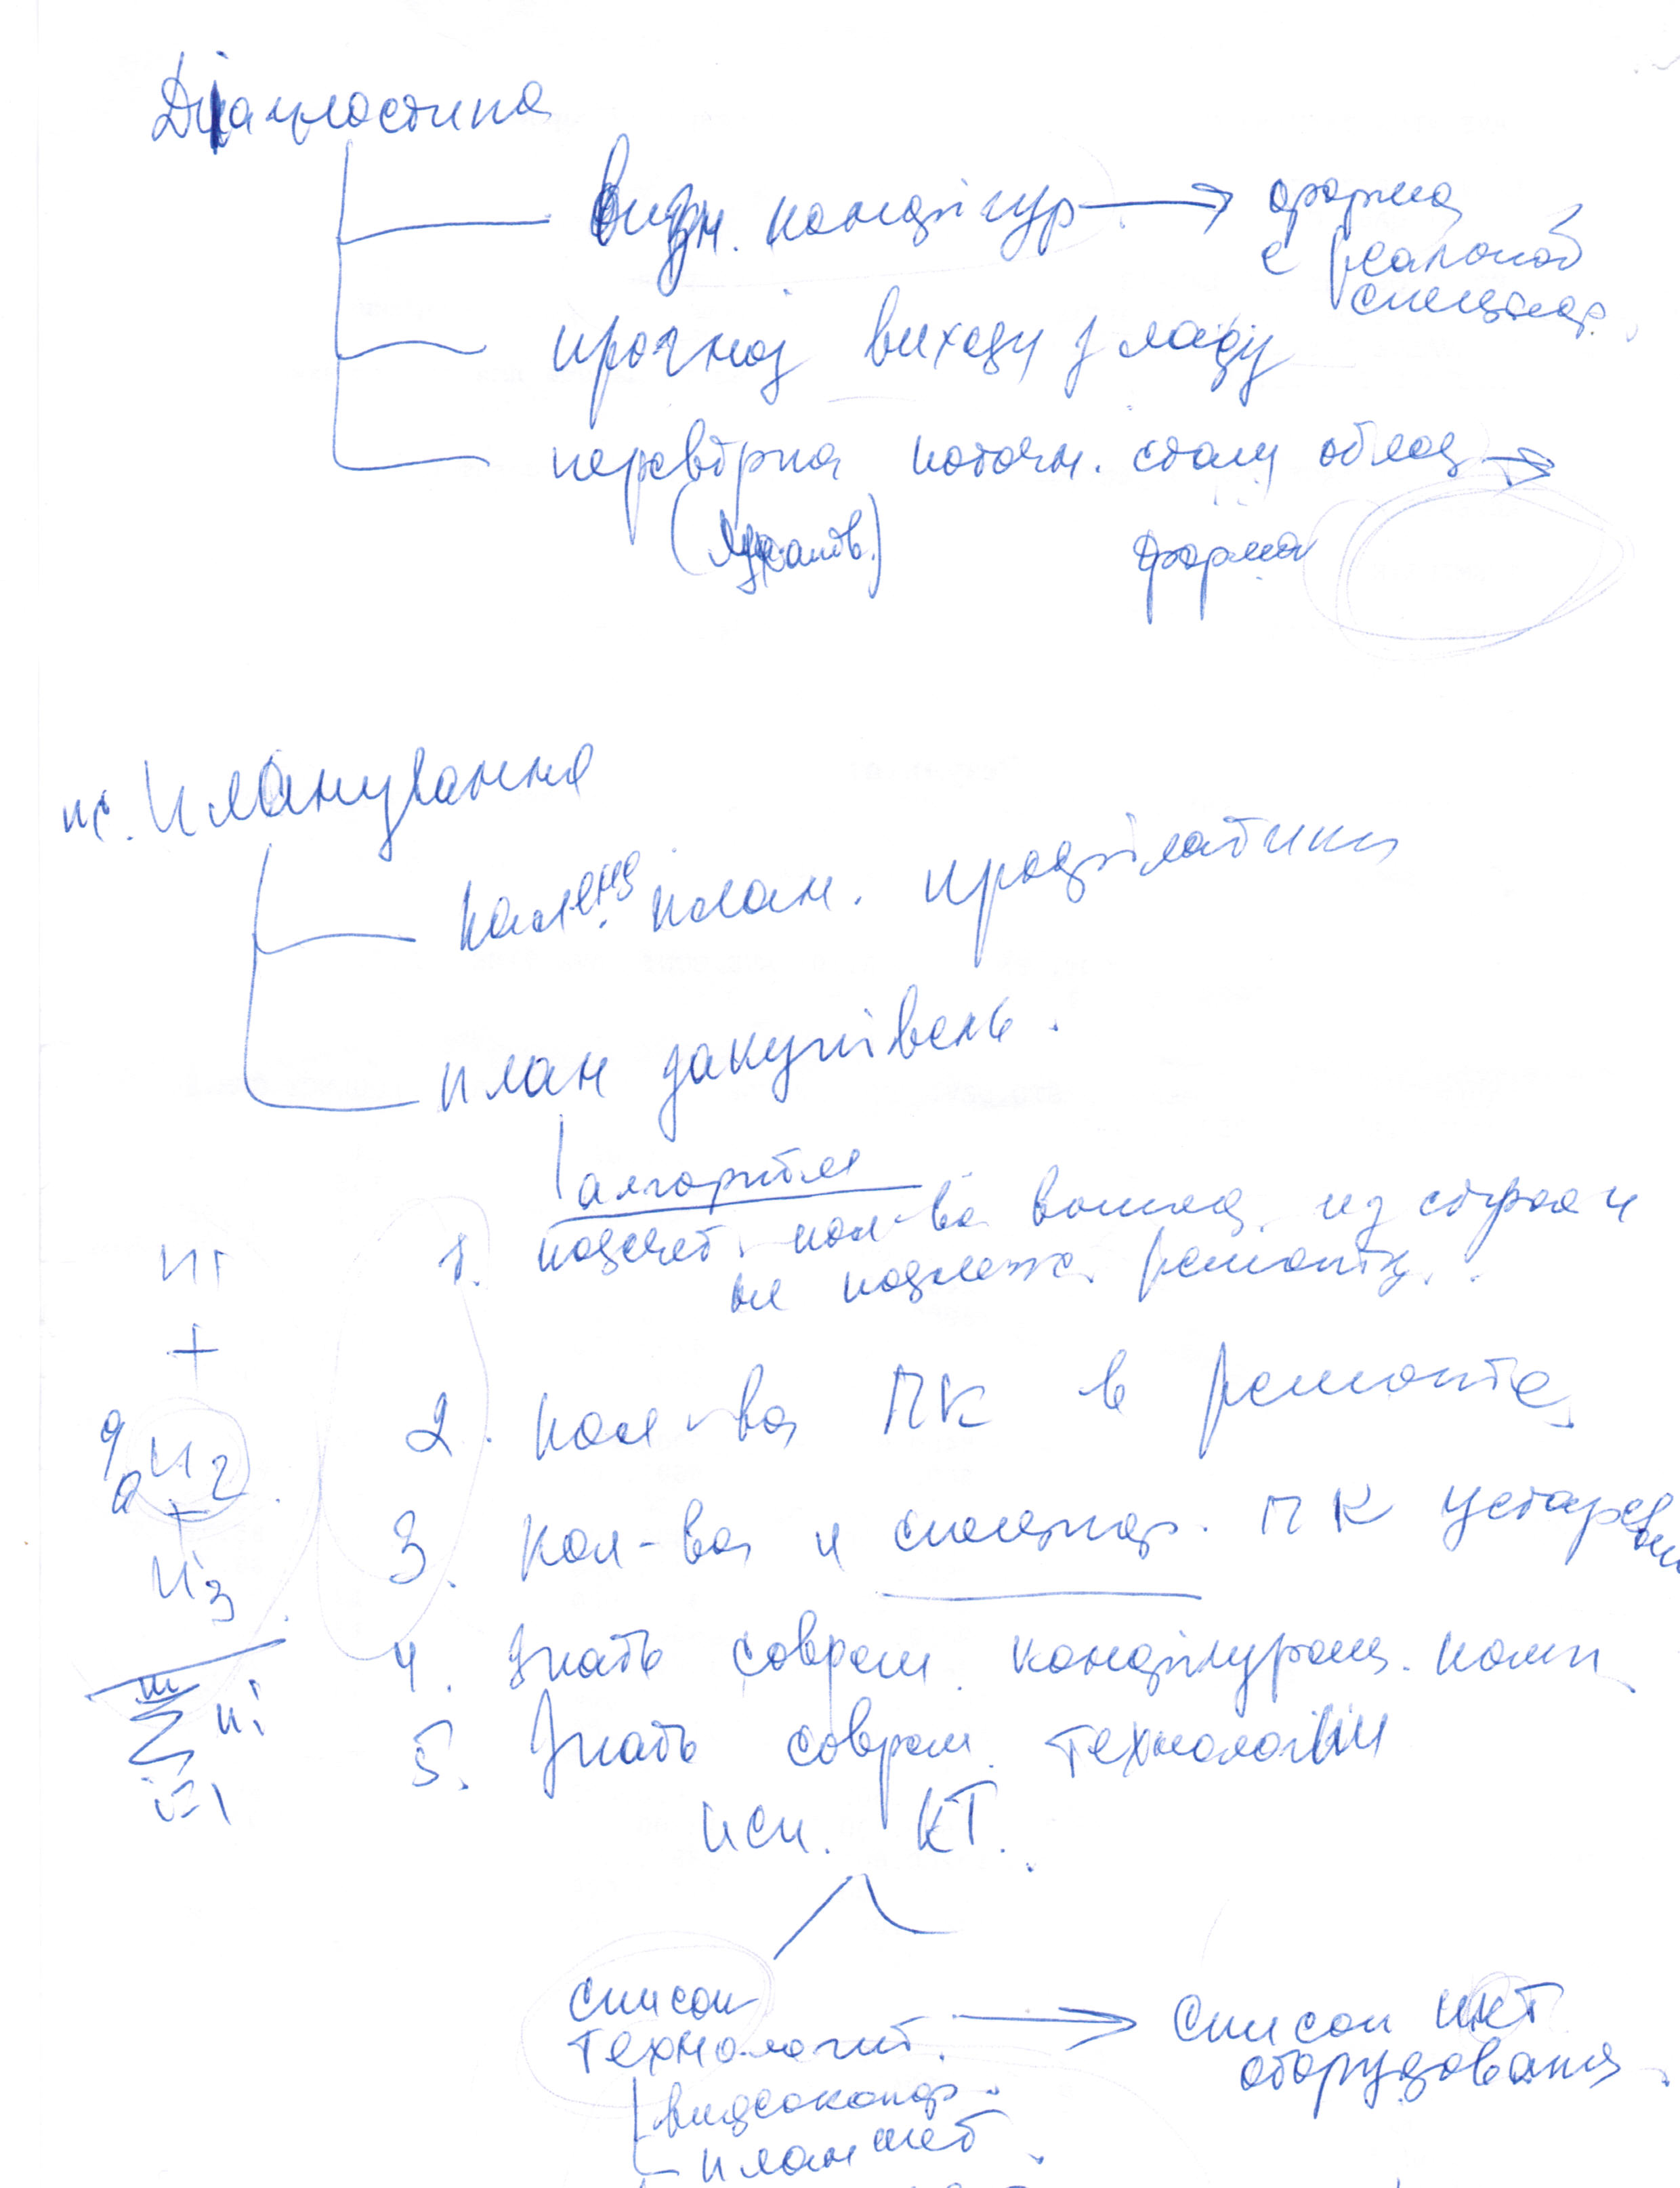 Діагностика
визн. конфігур → форма
с реальной
спецификац.
прогноз виходу з ладу
перевірка поточн. стану облад →
форма
Планування
календ. план. профілактики
план закупівель.
алгоритм
1. подсчет кол-ва вышед. из строя и
не подлеж. ремонту.
2. кол-во ПК в ремонте
3. Кол-во и специф. ПК устаревш
4. Знать соврем. конфигурац. комп.
5. Знать соврем. технологии
исп. КТ.
n1
+
n2
+
n3
m
Σ ni
i=1
список
технологий. → Список ИКТ
оборудования.
видеоконф.
планшет